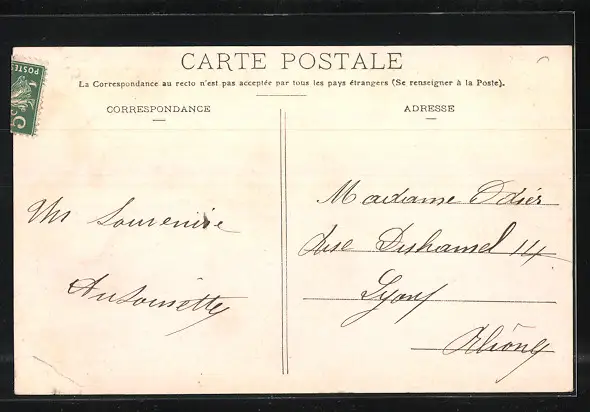 CARTE POSTALE
La Correspondance au recto n'est pas acceptée par tous les pays étrangers (Se renseigner à la Poste).
CORRESPONDANCE
ADRESSE
POSTES
Un Souvenire
Antoinette
Madame Odier
Rue Duhamel 14
Lyon
Rhône